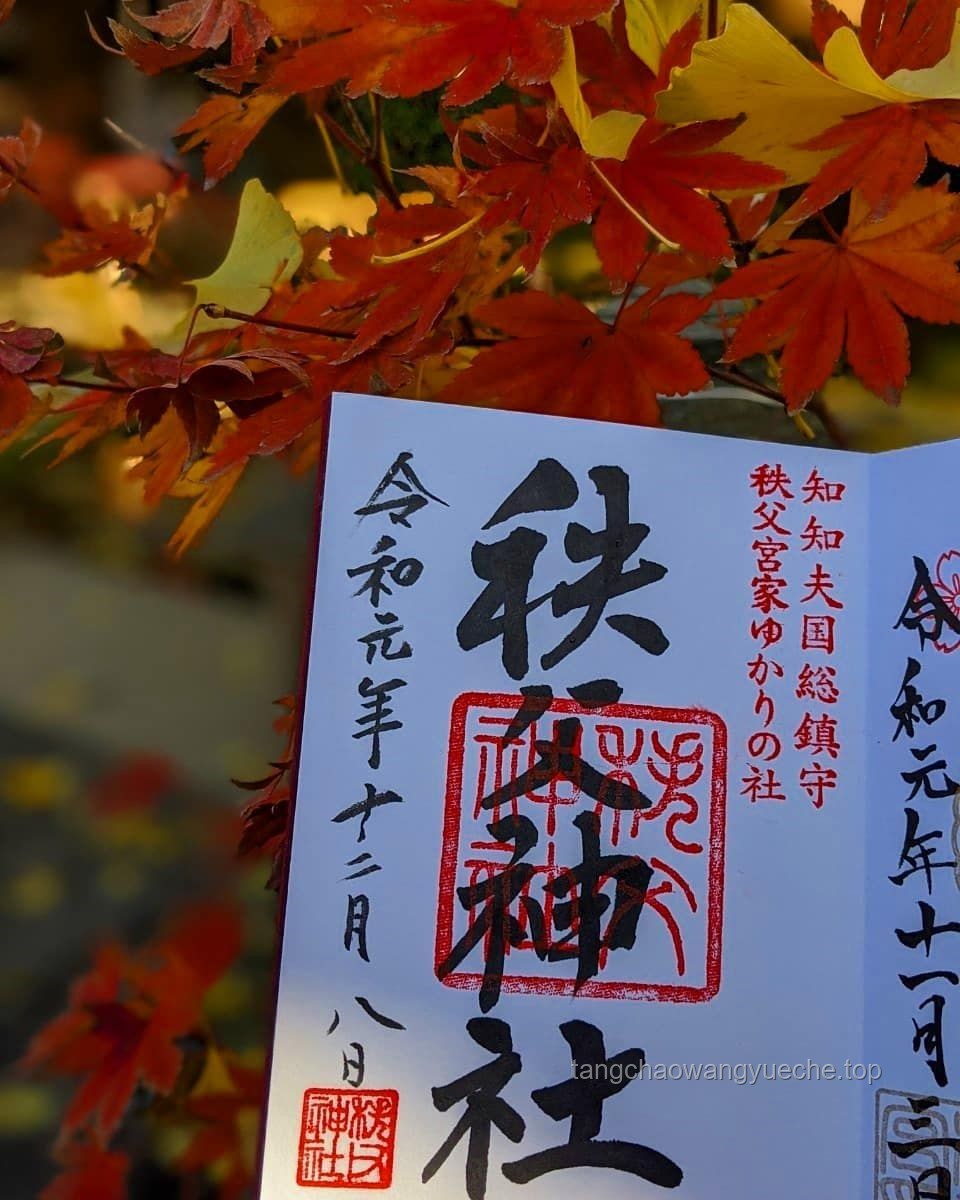 知知夫国総鎮守
秩父宮家ゆかりの社
秩父神社
令和元年十二月八日
秩父神社
秩父神社
令和元年十一月三日
tangchaowangyueche.top